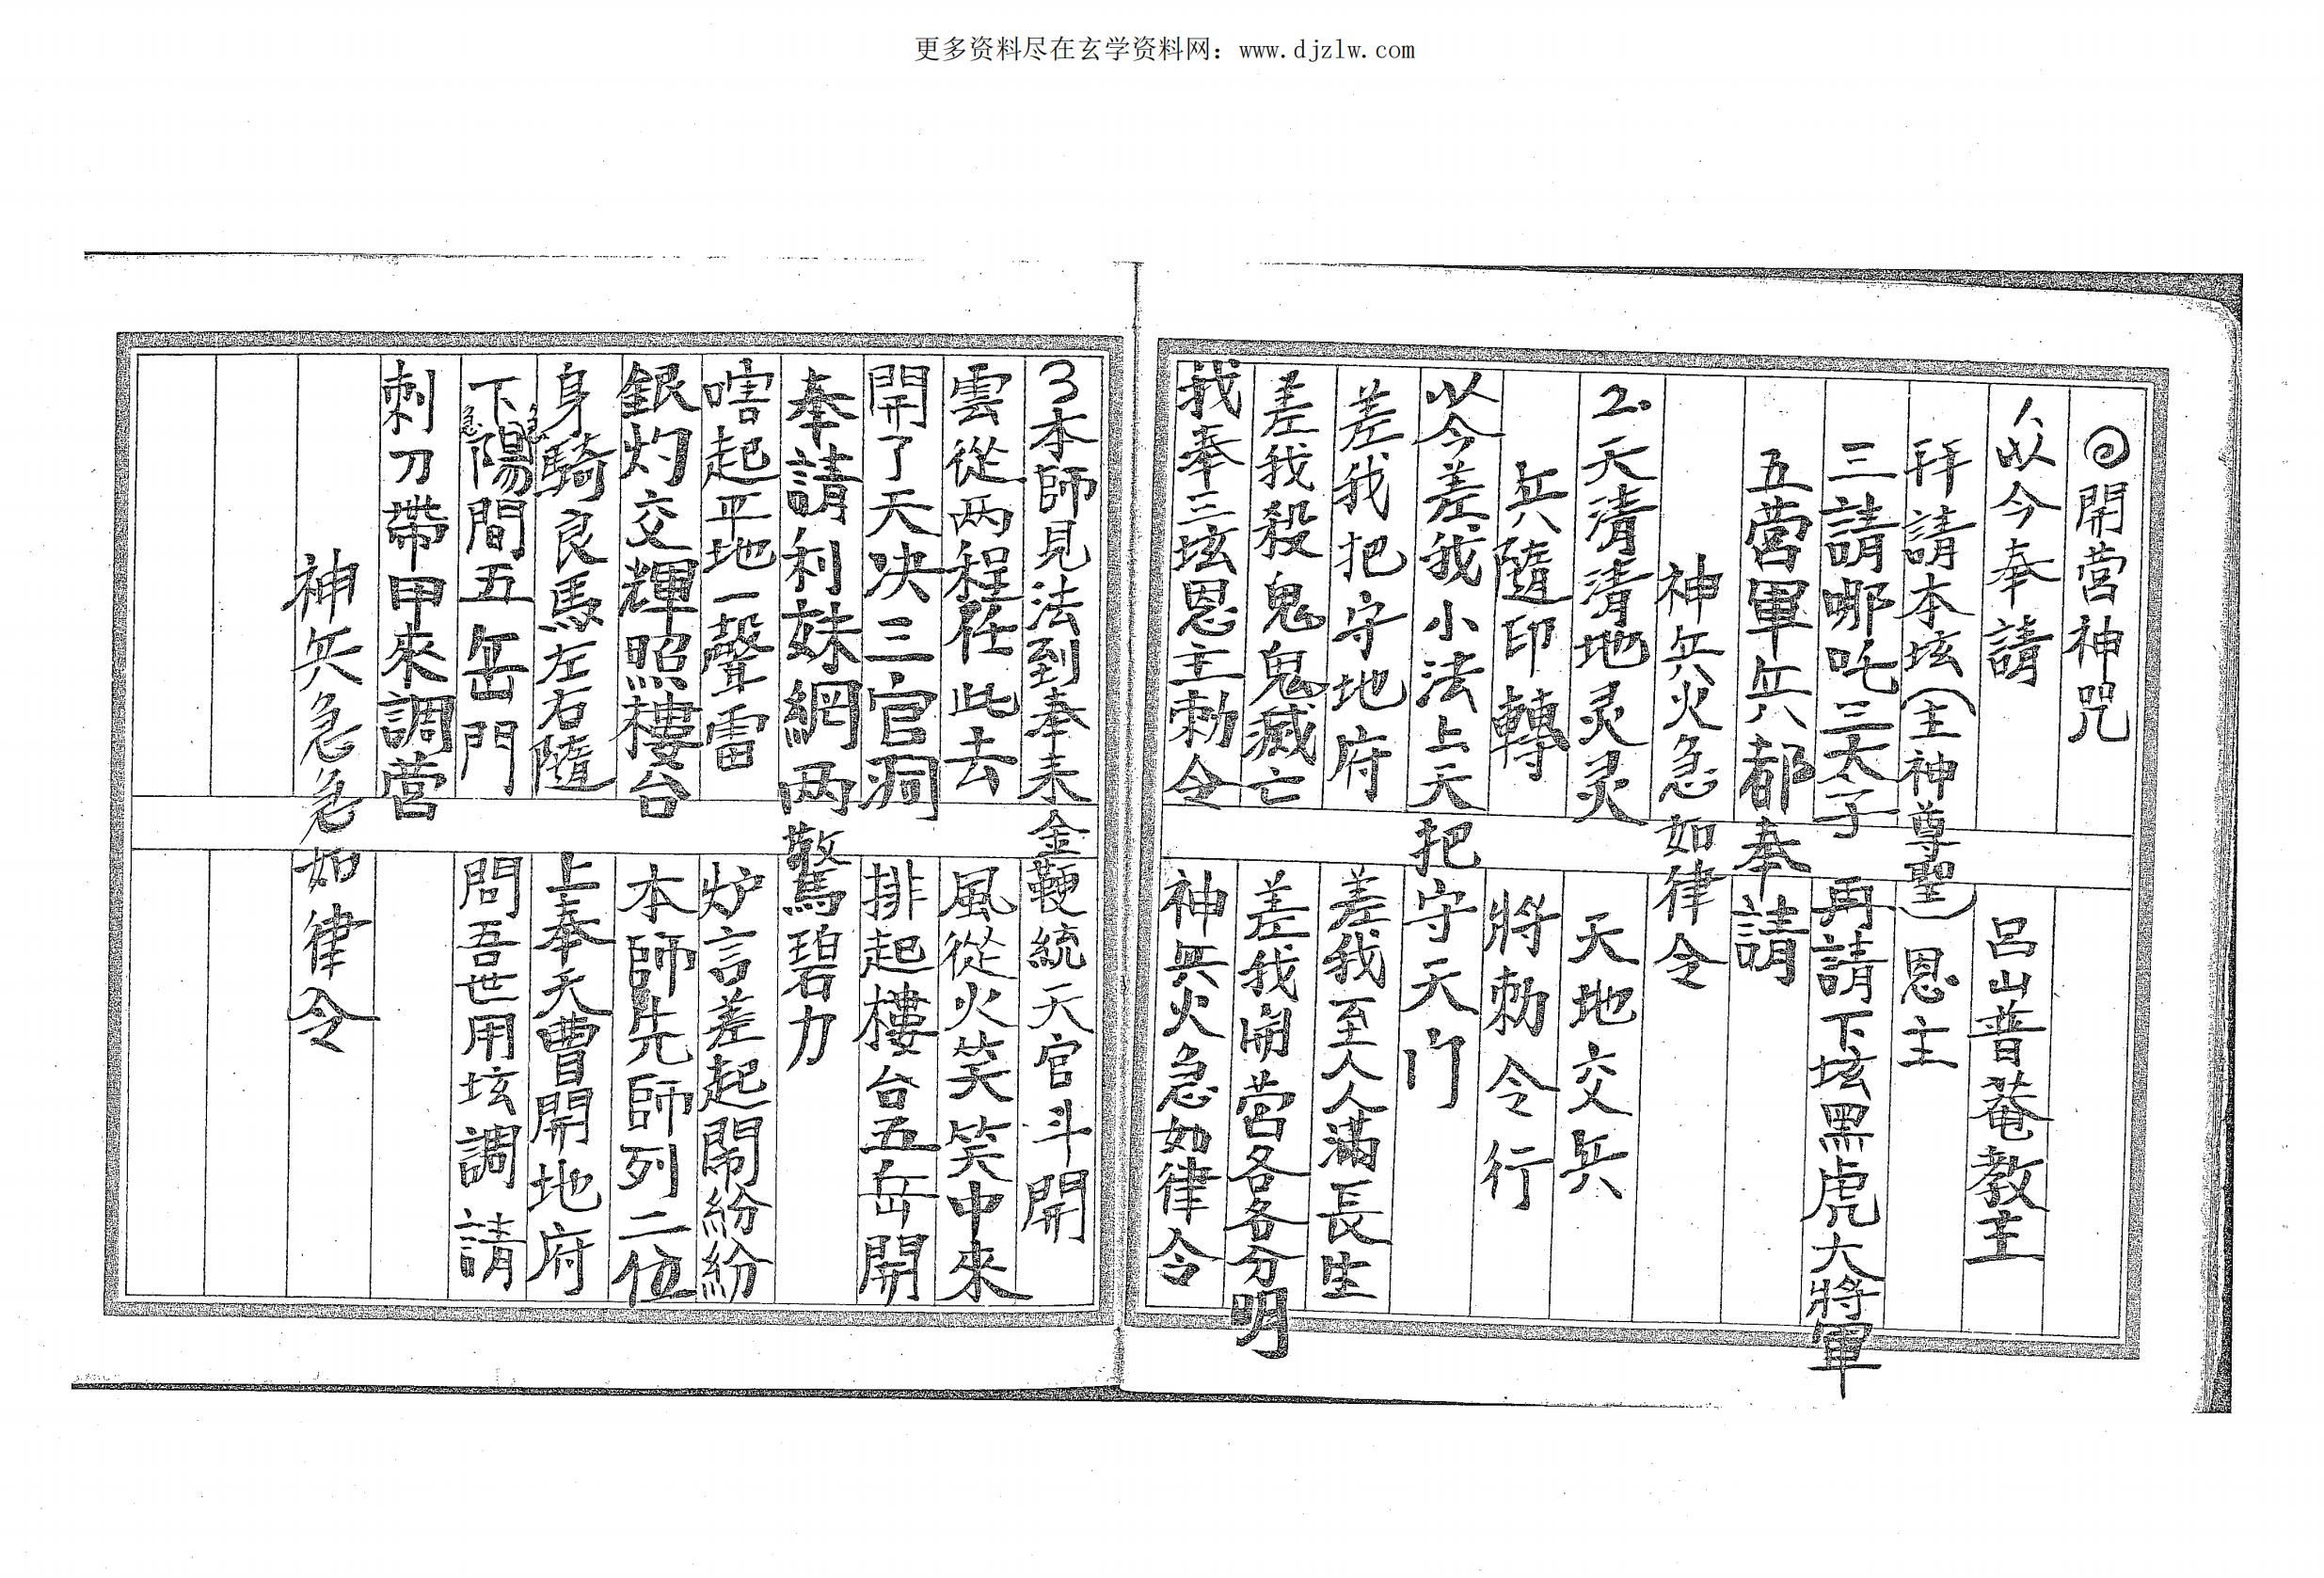 更多资料尽在玄学资料网：www.djzlw.com
開營神咒
以今奉請 呂山普菴教主
拜請本坛（主神尊聖）恩主
三請哪吒三太子 再請下坛黑虎大將軍
五營軍兵都奉請
神兵火急如律令
2.天清清地灵灵 天地交兵
兵隨印轉 將勅令行
以今差我小法上天把守天门
差我把守地府 差我至人人滿長生
差我殺鬼鬼滅亡 差我開營各各分明
我奉三坛恩主勅令 神兵火急如律令
3本師見法到奉来金鞭統天官斗開
雲從两程任此去 風從火笑笑中來
開了天决三官洞 排起樓台五岳開
奉請利妹網两驚碧力
嗐起平地一聲雷 炉言差起鬧紛紛
銀灼交輝照樓台 本師先師列二位
身騎良馬左右隨 上奉天曹開地府
下陽間五岳門 問吾世用坛調請
刺刀帶甲來調營
神兵急急如律令